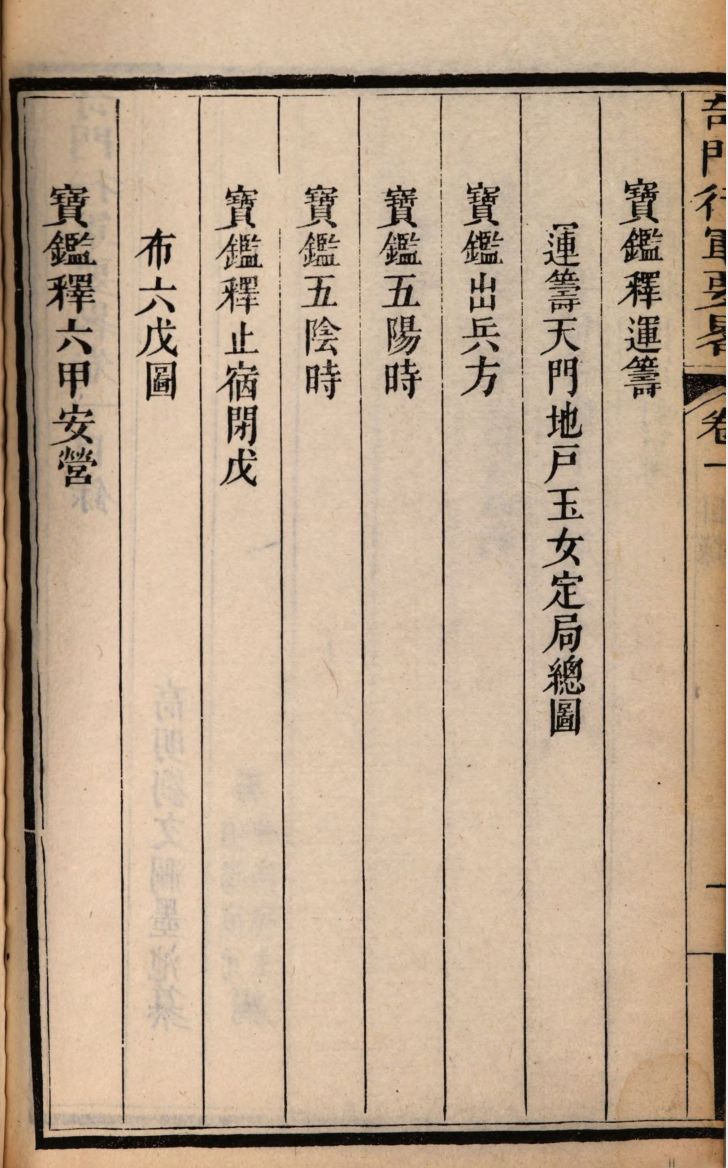 奇門行軍要畧 卷一 一
寶鑑釋運籌
運籌天門地戸玉女定局總圖
寶鑑出兵方
寶鑑五陽時
寶鑑五陰時
寶鑑釋止宿閉戊
布六戊圖
寶鑑釋六甲安營